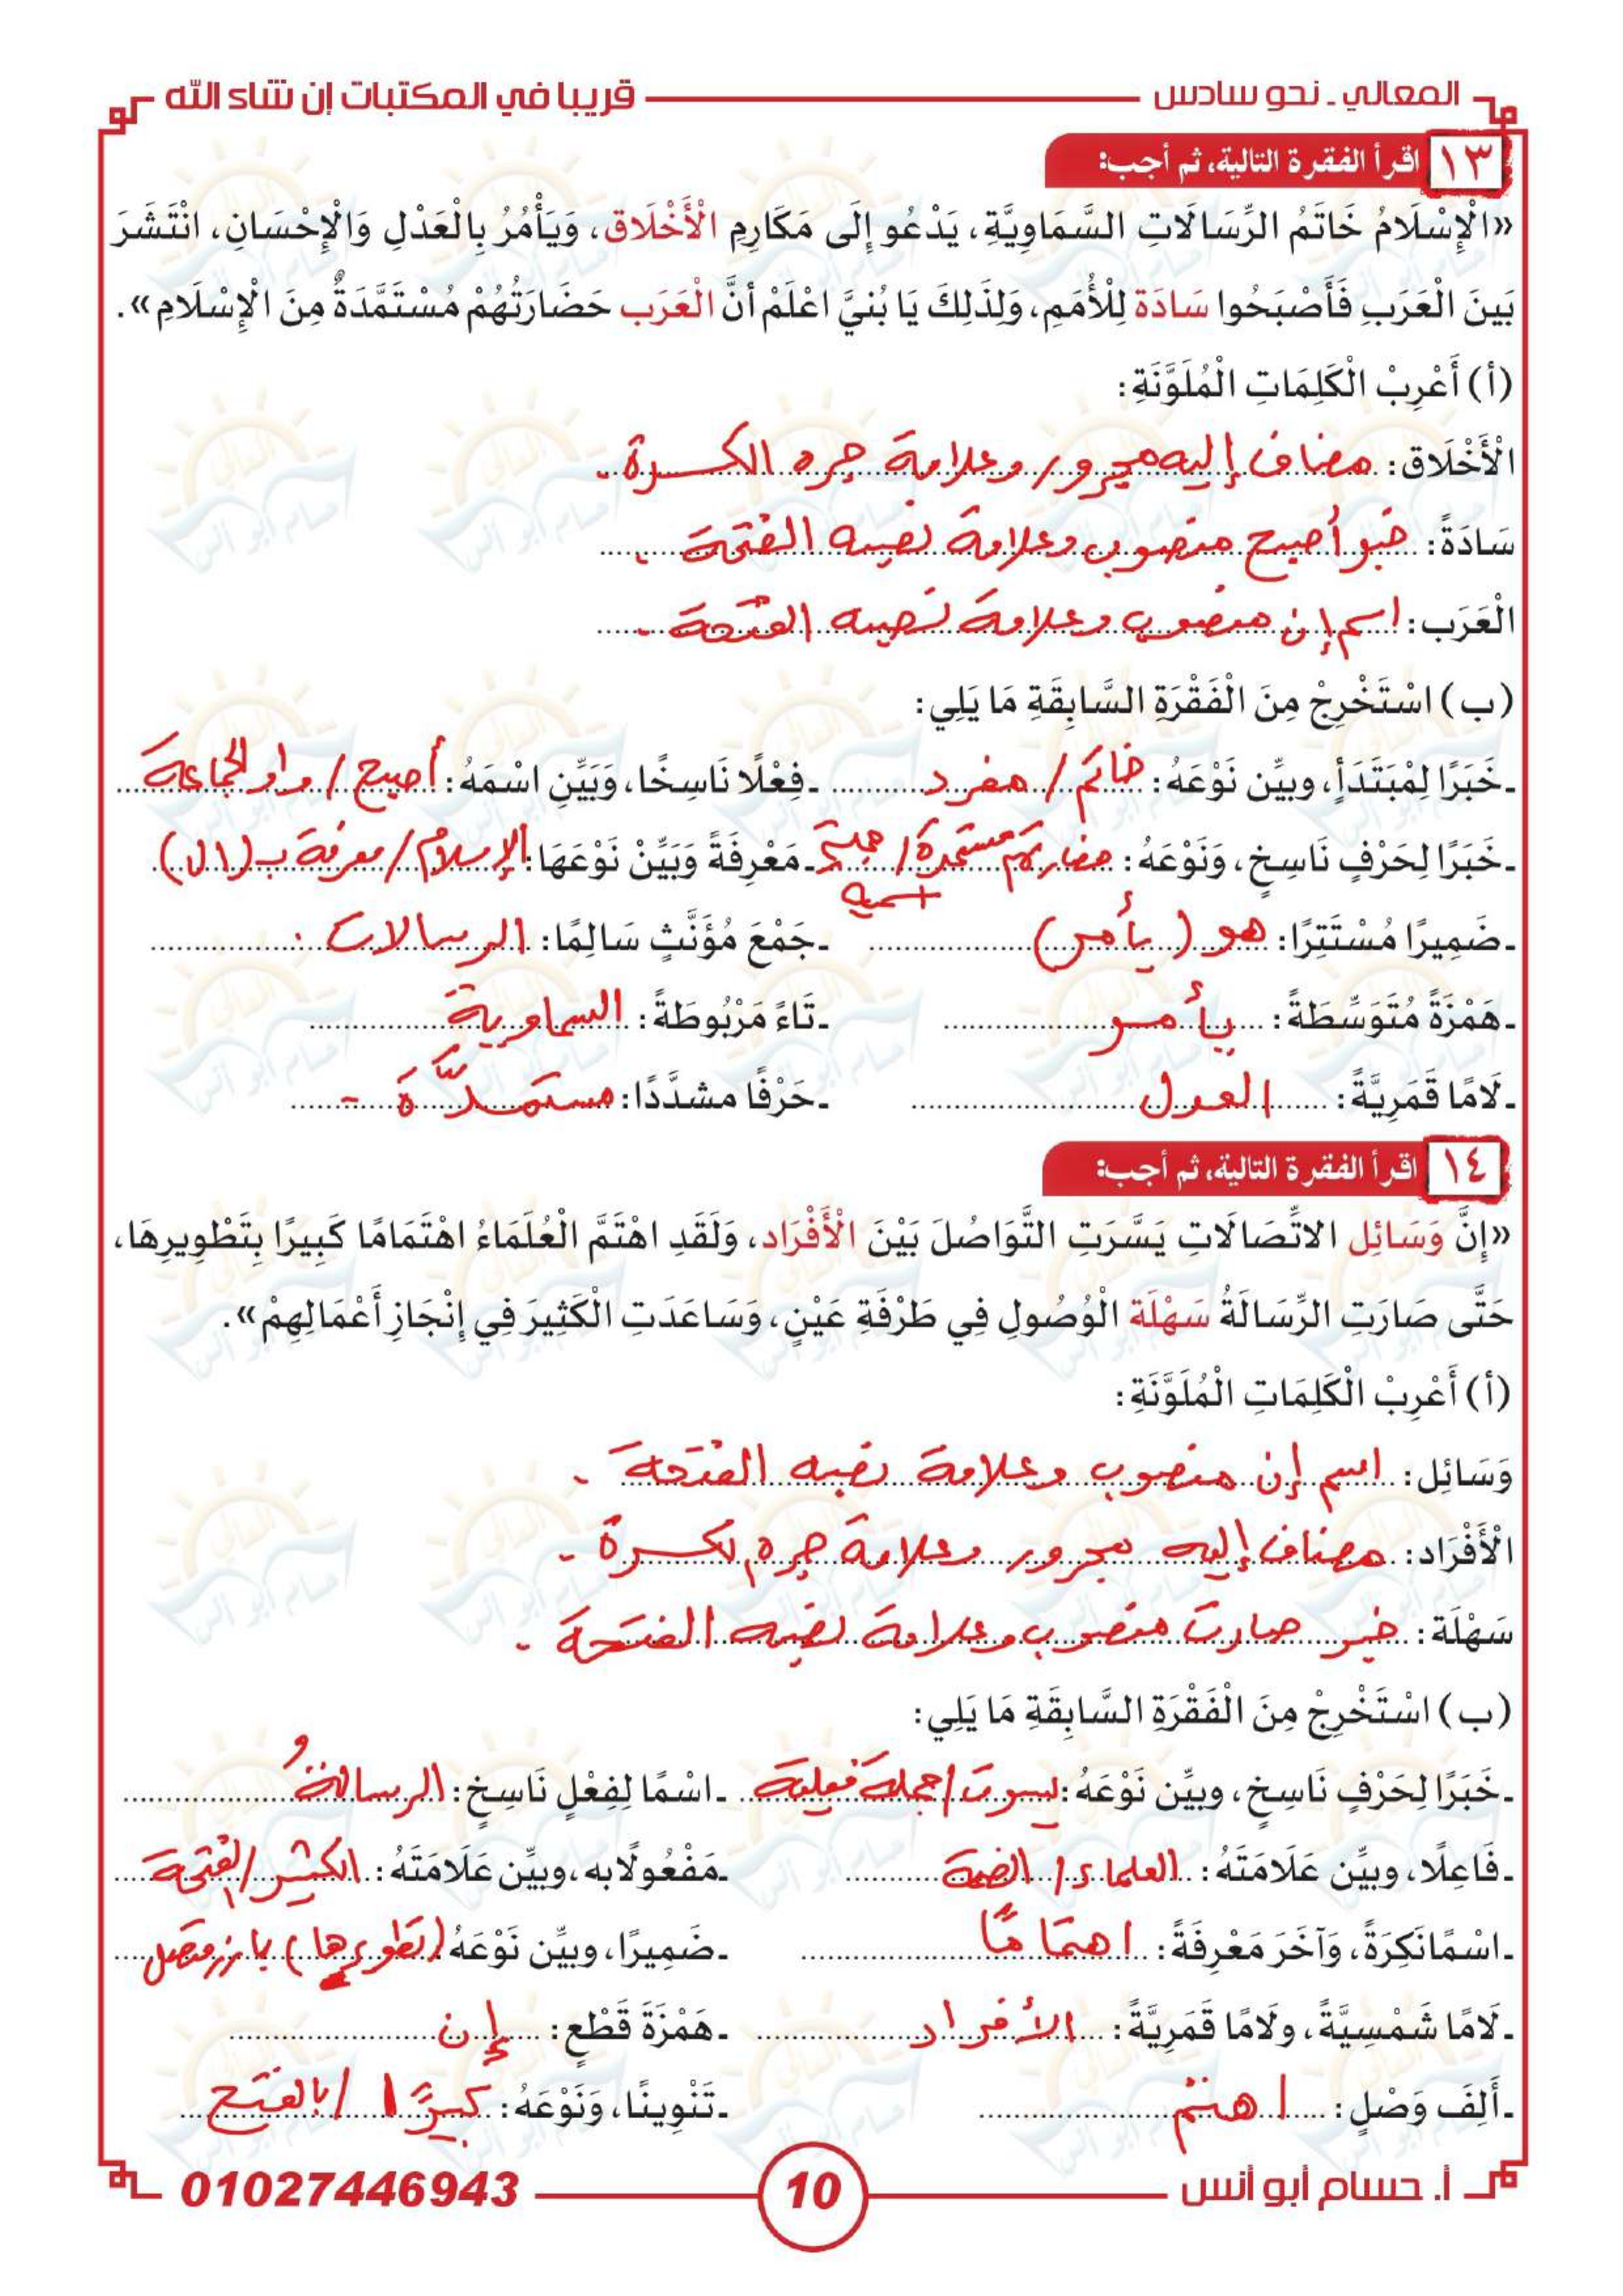 المعالي - نحو سادس
قريبا في المكتبات إن شاء الله
١٣ اقرأ الفقرة التالية، ثم أجب:
«الْإِسْلَامُ خَاتَمُ الرِّسَالَاتِ السَّمَاوِيَّةِ، يَدْعُو إِلَى مَكَارِمِ الْأَخْلَاق، وَيَأْمُرُ بِالْعَدْلِ وَالْإِحْسَانِ، انْتَشَرَ
بَينَ الْعَرَبِ فَأَصْبَحُوا سَادَة لِلْأُمَمِ، وَلِذَلِكَ يَا بُنيَّ اعْلَمْ أنَّ الْعَرَب حَضَارَتُهُمْ مُسْتَمَّدَةٌ مِنَ الْإِسْلَامِ».
(أ) أَعْرِبْ الْكَلِمَاتِ الْمُلَوَّنَةِ:
الْأَخْلَاق: مضاف إليه مجرور وعلامة جره الكسرة.
سَادَةً: خبر أصبح منصوب وعلامة نصبه الفتحة.
الْعَرَب: اسم إن منصوب وعلامة نصبه الفتحة.
(ب) اسْتَخْرِجْ مِنَ الْفَقْرَةِ السَّابِقَةِ مَا يَلِي:
ـ خَبَرًا لِمْبَتَدَأ، وبيِّن نَوْعَهُ: خاتم / مفرد ـ فِعْلًا نَاسِخًا، وَبَيِّنِ اسْمَهُ: أصبح / واو الجماعة
ـ خَبَرًا لِحَرْفٍ نَاسِخٍ، وَنَوْعَهُ: حضارتهم مستمدة / جملة اسمية ـ مَعْرِفَةً وَبَيِّنْ نَوْعَهَا: الإسلام / معرفة بـ (ال)
ـ ضَمِيرًا مُسْتَتِرًا: هو (يأمر) ـ جَمْعَ مُؤَنَّثٍ سَالِمًا: الرسالات.
ـ هَمْزَةً مُتَوَسِّطَةً: يأمر ـ تَاءً مَرْبُوطَةً: السماوية
ـ لَامًا قَمَرِيَّةً: العدل ـ حَرْفًا مشدَّدًا: مستمدَّة
١٤ اقرأ الفقرة التالية، ثم أجب:
«إِنَّ وَسَائِل الاتِّصَالَاتِ يَسَّرَتِ التَّوَاصُلَ بَيْنَ الْأَفْرَاد، وَلَقَدِ اهْتَمَّ الْعُلَمَاءُ اهْتَمَامًا كَبِيرًا بِتَطْوِيرِهَا،
حَتَّى صَارَتِ الرِّسَالَةُ سَهْلَة الْوُصُولِ فِي طَرْفَةِ عَيْنٍ، وَسَاعَدَتِ الْكَثِيرَ فِي إِنْجَازِ أَعْمَالِهِمْ».
(أ) أَعْرِبْ الْكَلِمَاتِ الْمُلَوَّنَةِ:
وَسَائِل: اسم إن منصوب وعلامة نصبه الفتحة.
الْأَفْرَاد: مضاف إليه مجرور وعلامة جره لكسرة.
سَهْلَة: خبر صارت منصوب وعلامة نصبه الفتحة.
(ب) اسْتَخْرِجْ مِنَ الْفَقْرَةِ السَّابِقَةِ مَا يَلِي:
ـ خَبَرًا لِحَرْفٍ نَاسِخٍ، وبيِّن نَوْعَهُ: يسرت / جملة فعلية ـ اسْمًا لِفِعْلٍ نَاسِخٍ: الرسالةُ
ـ فَاعِلًا، وبيِّن عَلَامَتَهُ: العلماء / الضمة ـ مَفْعُولًا به، وبيِّن عَلَامَتَهُ: الكثير / الفتحة
ـ اسْمًا نَكِرَةً، وَآخَرَ مَعْرِفَةً: اهتمامًا ـ ضَمِيرًا، وبيِّن نَوْعَهُ: (بتطويرها) بارز متصل
ـ لَامًا شَمْسِيَّةً، ولَامًا قَمَرِيَّةً: الأفراد ـ هَمْزَةَ قَطْعٍ: إن
ـ أَلِفَ وَصْلٍ: اهتم ـ تَنْوِينًا، وَنَوْعَهُ: كبيرًا / بالفتح
أ. حسام أبو أنس
10
01027446943